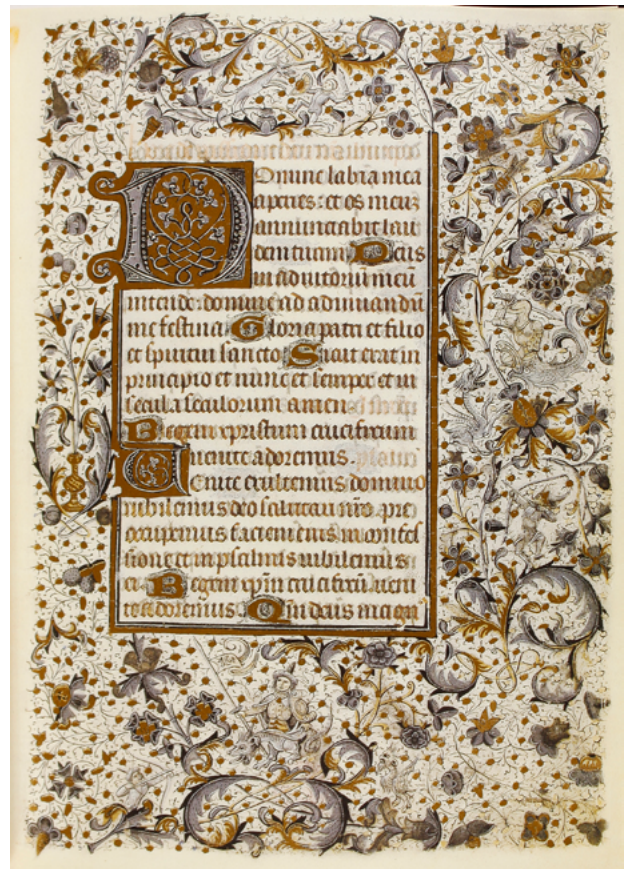 Domine labia mea
aperies: et os meuz
annunciabit lau
dem tuam Deus
in adiutoriũ meũ
intende: domine ad adiuuandũ
me festina Gloria patri et filio
et spiritui sancto Sicut erat in
principio et nunc et semper et in
secula seculorum amen
Regem xpristum crucifixum
uenite adoremus
Uenite exultemus domino
iubilemus deo salutari nr̃o pre
occupemus faciem eius in confes
sione et in psalmis iubilemus
ei Regem xpm̃ crucifixũ ueni
te adoremus Qm̃ deus magn